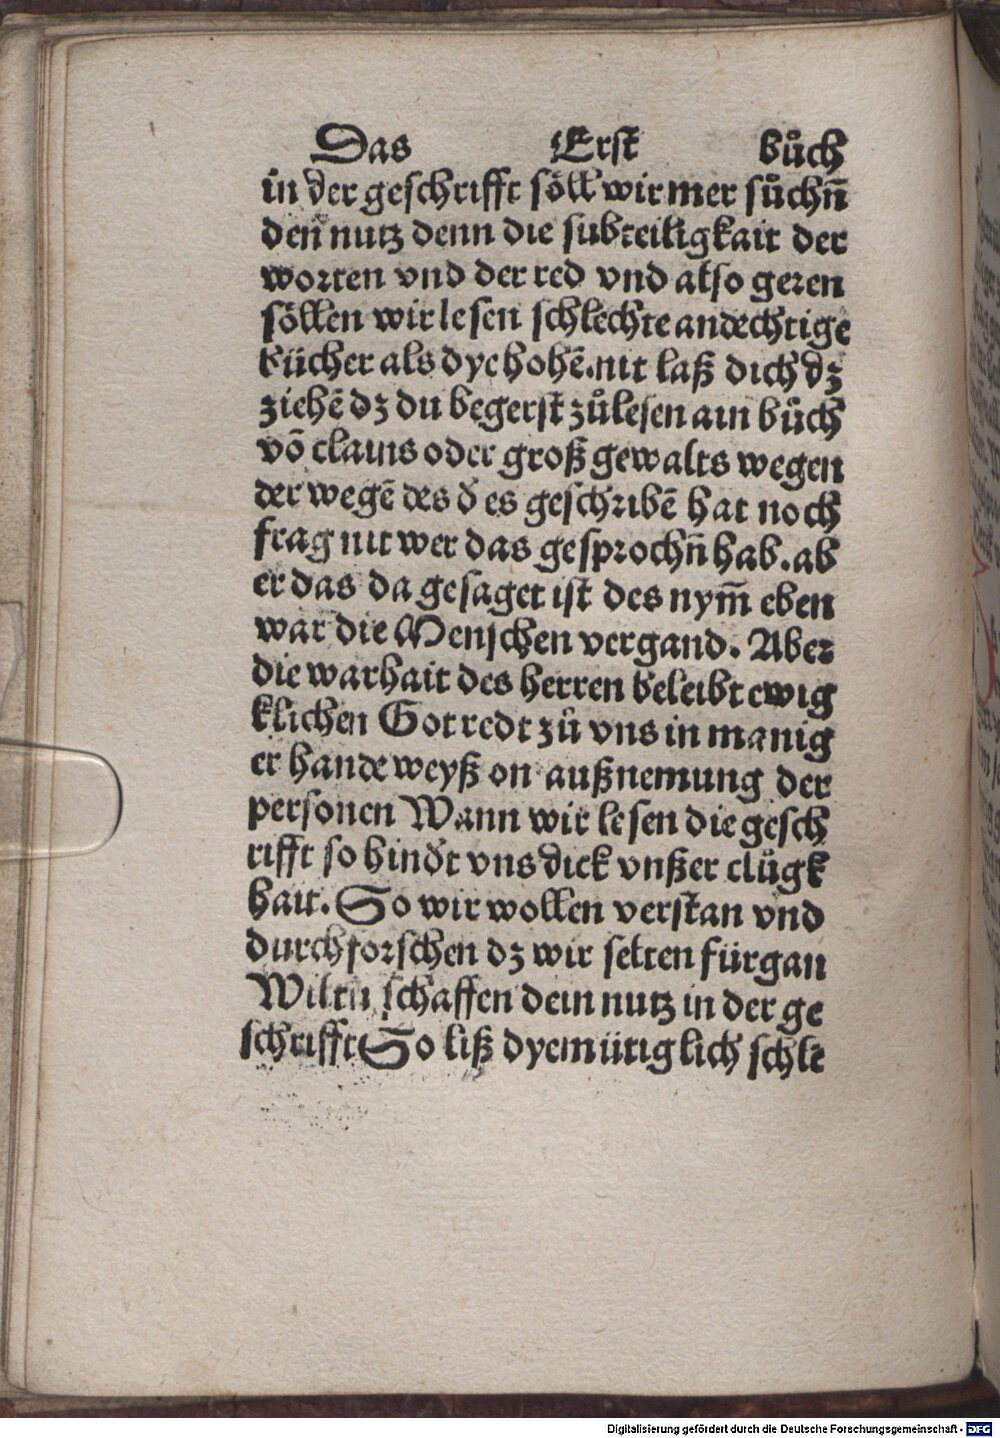 Das Erst bůch
in der geschrifft söll wir mer sůchn̄
den nutz denn die subteiligkait der
worten vnd der red vnd also geren
söllen wir lesen schlechte andechtige
bücher als dye hohē. nit laß dich dz
ziehē dz du begerst zůlesen ain bůch
vō clains oder groß gewalts wegen
der wegē des d̕ es geschribē hat noch
frag nit wer das gesprochn̄ hab. ab
er das da gesaget ist des nym̄ eben
war die Menschen vergand. Aber
die warhait des herren beleibt ewig
klichen Got redt zů vns in manig
er hande weyß on außnemung der
personen Wann wir lesen die gesch
rifft so hind̕t vns dick vnßer clůgk
hait. So wir wollen verstan vnd
durchforschen dz wir selten fürgan
Wiltu schaffen dein nutz in der ge
schrifft So liß dyemütiglich schle
Digitalisierung gefördert durch die Deutsche Forschungsgemeinschaft - DFG